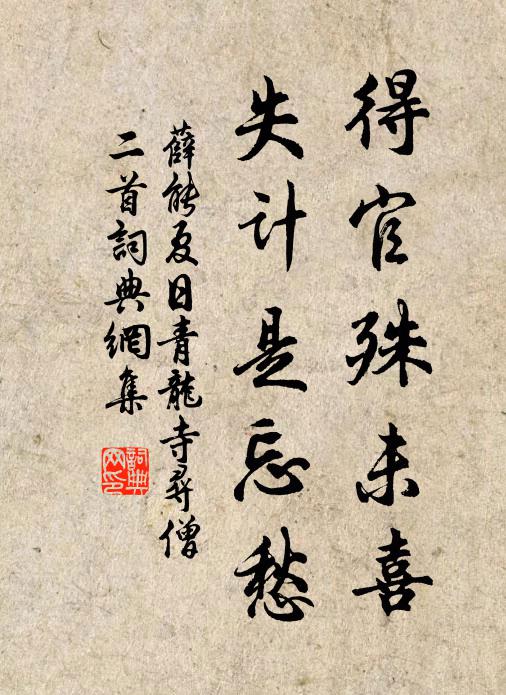 得官殊未喜
失计是忘愁
薛能夏日青龍寺尋僧
二首詞典網集
詞典
网印